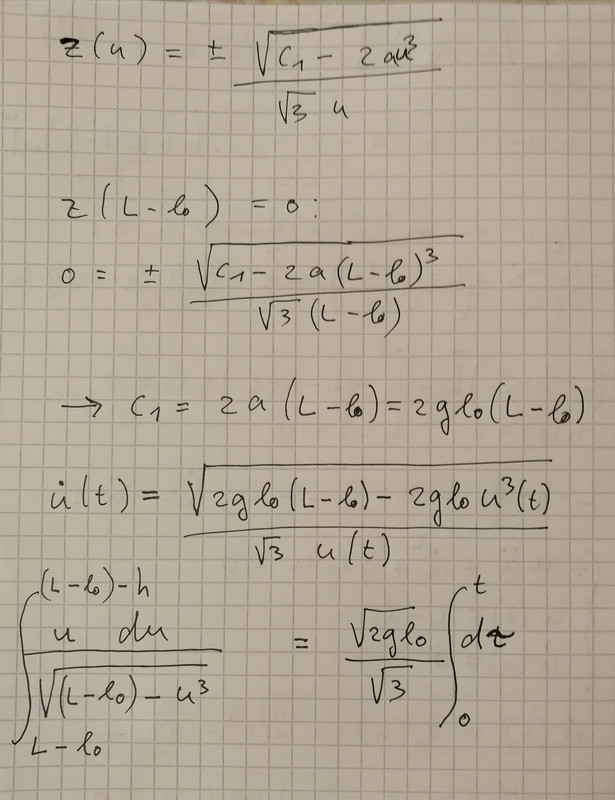 z(u) = ± √(C₁ - 2au³) / (√3 u)
z(L-l₀) = 0:
0 = ± √(C₁ - 2a(L-l₀)³) / (√3 (L-l₀))
→ C₁ = 2a(L-l₀) = 2gl₀(L-l₀)
u̇(t) = √(2gl₀(L-l₀) - 2gl₀u³(t)) / (√3 u(t))
∫_{L-l₀}^{(L-l₀)-h} u du / √((L-l₀) - u³) = √(2gl₀) / √3 ∫₀^t dt